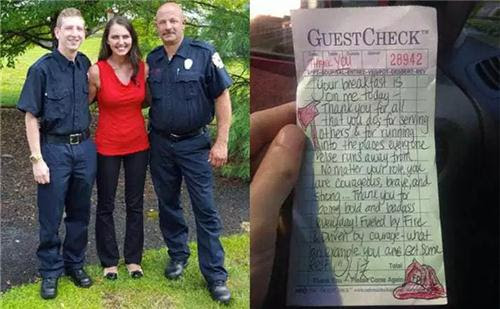 GUESTCHECK™
Thank You
28942
Your breakfast is
on me today -
Thank you for all
that you do for serving
others & for running
into the places everyone
else runs away from.
No matter your role, you
are courageous, brave, and
strong... Thank you for
being bold and badass
everyday! Fueled by fire
& driven by courage - what
an example you are. Get some
REST ♡ Liz
Total
Thank You - Please Come Again